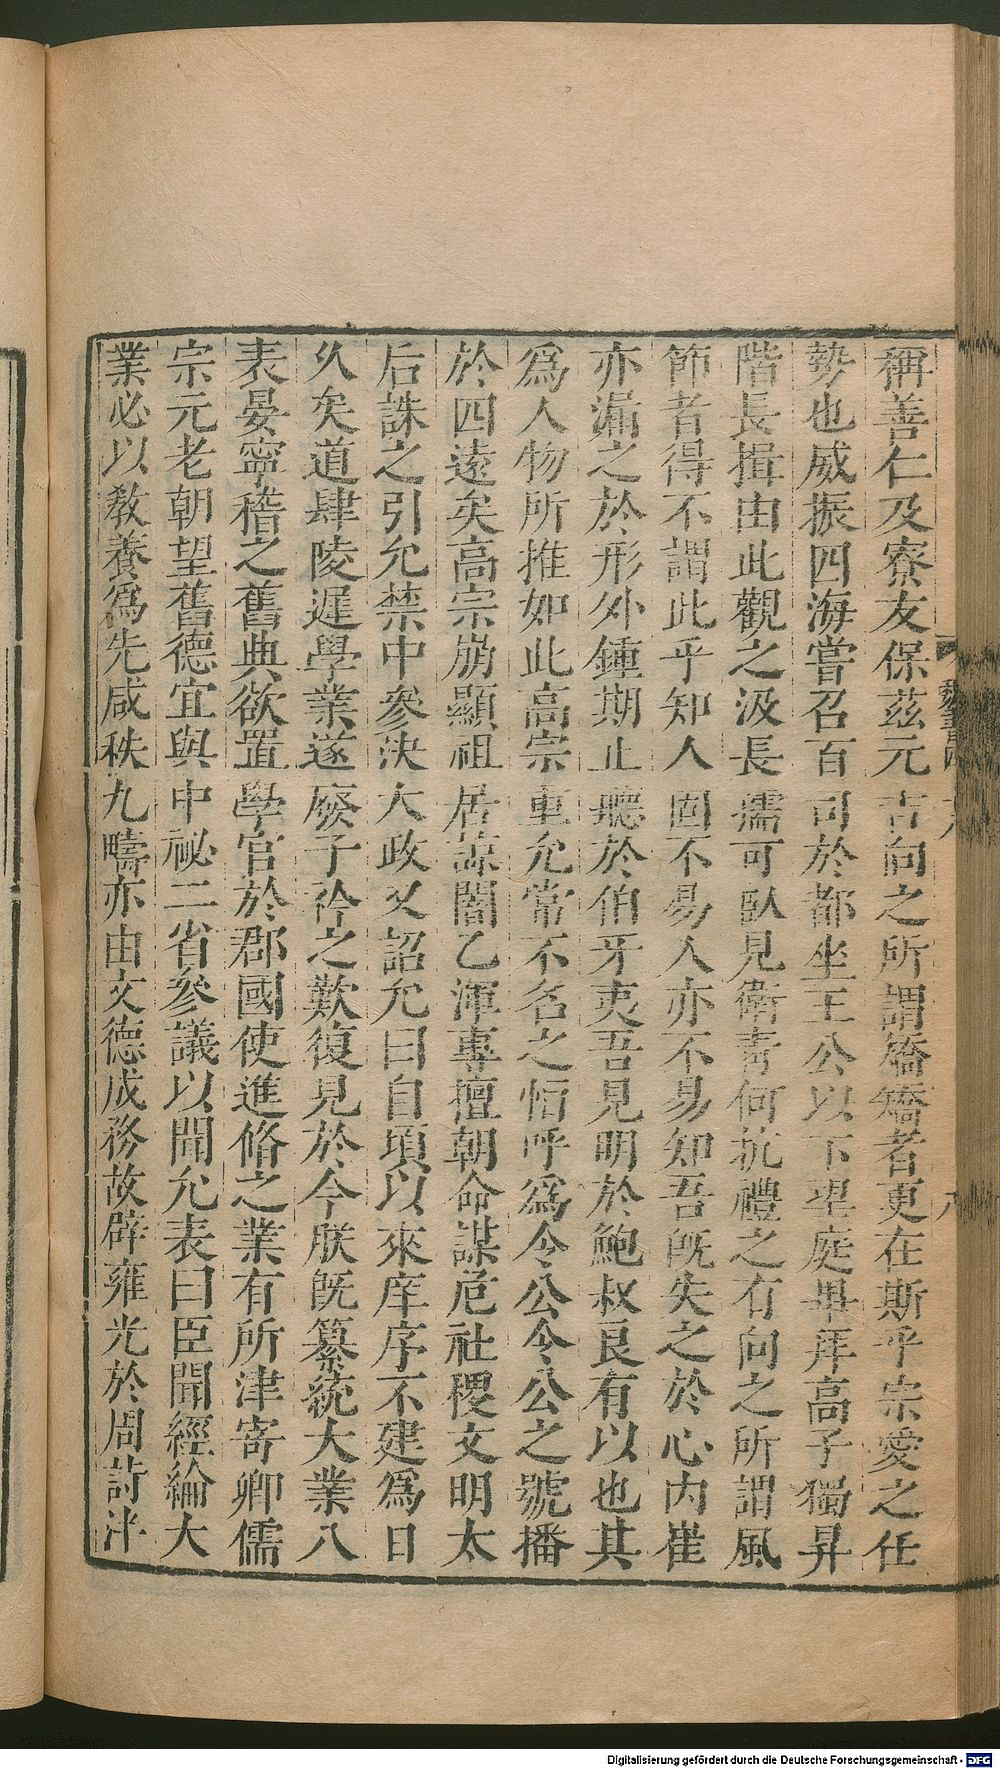 稱善仁及寮友保茲元吉向之所謂矯矯者更在斯乎宗愛之任
勢也威振四海嘗召百司於都坐王公以下望庭畢拜高子獨昇
階長揖由此觀之汲長孺可臥見衛青何抗禮之有向之所謂風
節者得不謂此乎知人固不易人亦不易知吾既失之於心內崔
亦漏之於形外鍾期止聽於伯牙夷吾見明於鮑叔良有以也其
爲人物所推如此高宗重允常不名之恒呼爲令公令公之號播
於四遠矣高宗崩顯祖居諒闇乙渾專擅朝命謀危社稷文明太
后誅之引允禁中參決大政又詔允曰自頃以來庠序不建爲日
久矣道肆陵遲學業遂廢子衿之歎復見於今朕旣纂統大業八
表晏寧稽之舊典欲置學官於郡國使進脩之業有所津寄卿儒
宗元老朝望舊德宜與中祕二省參議以聞允表曰臣聞經綸大
業必以敎養爲先咸秩九疇亦由文德成務故辟雍光於周詩泮
Digitalisierung gefördert durch die Deutsche Forschungsgemeinschaft - DFG